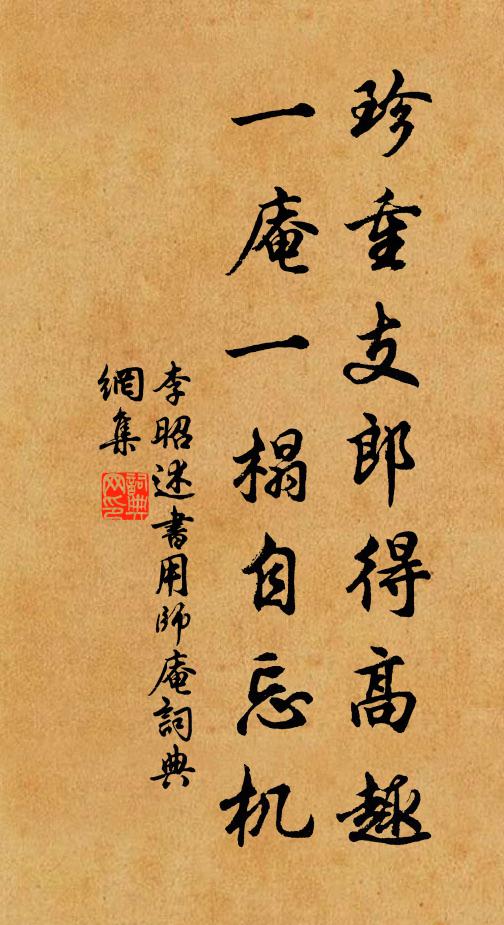 珍重支郎得高趣
一庵一榻自忘机
李昭述書用師庵詞典
網集
詞典网印